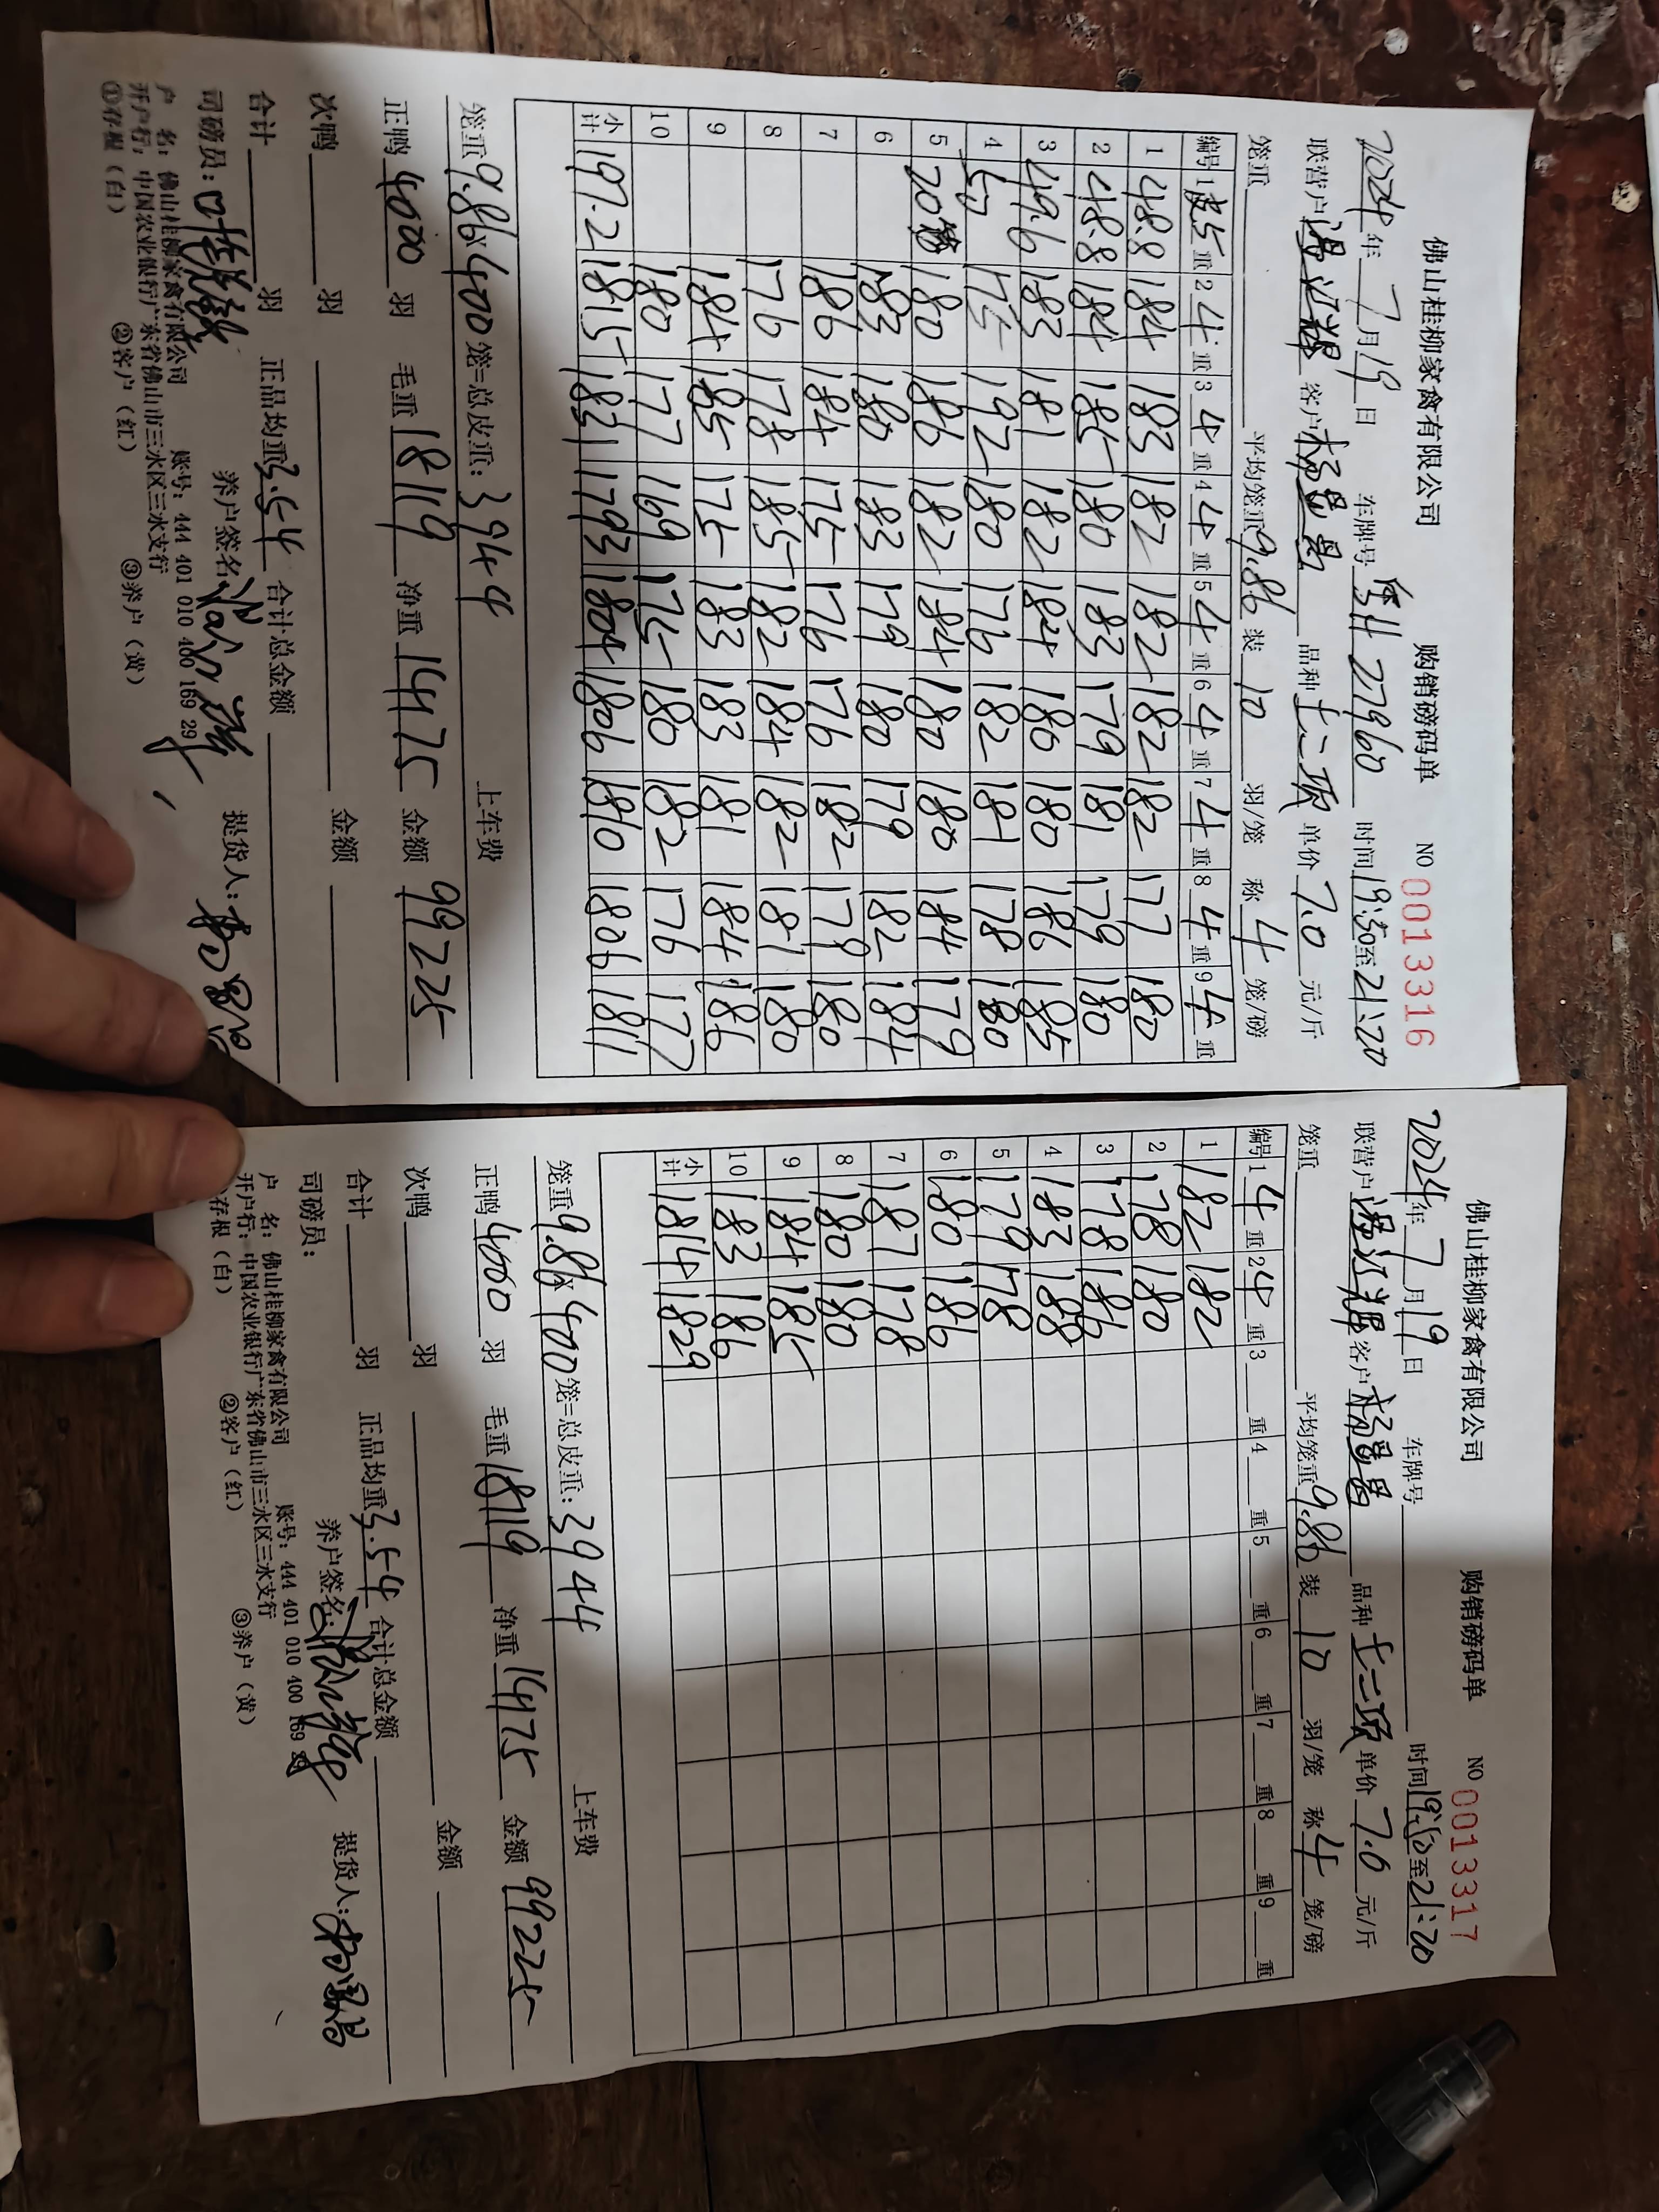 佛山桂柳家禽有限公司 购销磅码单 NO 0013316
2024年7月19日 车牌号 27960 时间19:50至21:20
联营户 客户杨 品种 单价7.0元/斤
笼重 平均笼重9.86 装10羽/笼 称4笼/磅
编号 1皮5重 2 4重 3 4重 4 4重 5 4重 6 4重 7 4重 8 4重 9 4重
1 48.8 184 183 182 182 182 182 177 180
2 48.8 184 185 180 183 179 181 179 180
3 49.6 183 181 182 184 180 180 186 185
4 50 175 192 180 176 182 181 178 180
5 20笼 180 186 182 184 180 180 184 179
6 183 180 183 179 180 179 182 184
7 186 184 175 176 176 182 179 180
8 176 178 185 182 184 182 181 180
9 184 185 175 183 183 181 184 186
10 180 177 169 175 180 182 176 177
小计 197.2 1815 1831 1793 1804 1806 1810 1806 1811
笼重9.86×400笼=总皮重:3944 上车费
正鸭4000羽 毛重18119 净重14175 金额99225
次鸭 羽 金额
合计 羽 正品均重3.54 合计总金额
司磅员: 养户签名: 提货人:
户 名:佛山桂柳家禽有限公司 账号:444 401 010 400 169 29
开户行:中国农业银行广东省佛山市三水区三水支行
①存根(白) ②客户(红) ③养户(黄)
佛山桂柳家禽有限公司 购销磅码单 NO 0013317
2024年7月19日 车牌号 时间19:50至21:20
联营户 客户杨 品种 单价7.0元/斤
笼重 平均笼重9.86 装10羽/笼 称4笼/磅
编号 1 4重 2 4重 3 重 4 重 5 重 6 重 7 重 8 重 9 重
1 182 182
2 178 180
3 178 186
4 183 188
5 179 178
6 180 186
7 187 178
8 180 180
9 184 185
10 183 186
小计 1814 1829
笼重9.86×400笼=总皮重:3944 上车费
正鸭4000羽 毛重18119 净重14175 金额99225
次鸭 羽 金额
合计 羽 正品均重3.54 合计总金额
司磅员: 养户签名: 提货人:
户 名:佛山桂柳家禽有限公司 账号:444 401 010 400 169 29
开户行:中国农业银行广东省佛山市三水区三水支行
存根(白) ②客户(红) ③养户(黄)